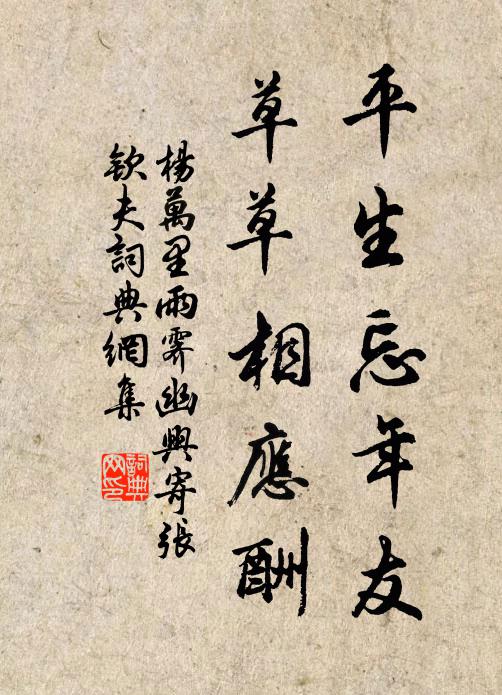 平生忘年友
草草相應酬
楊萬里雨霽幽興寄張
欽夫詞典網集
詞典
網印